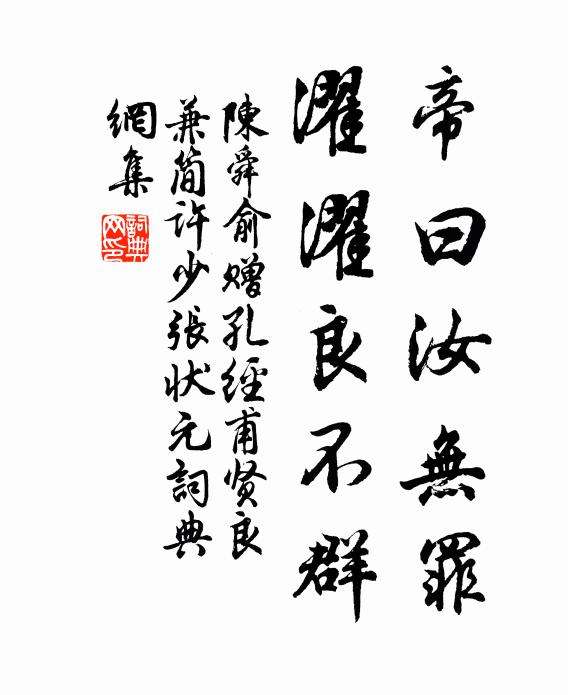 帝曰汝無罪
濯濯良不群
陳舜俞贈孔經甫贤良
兼简許少張状元詞典
網集
詞典
网印